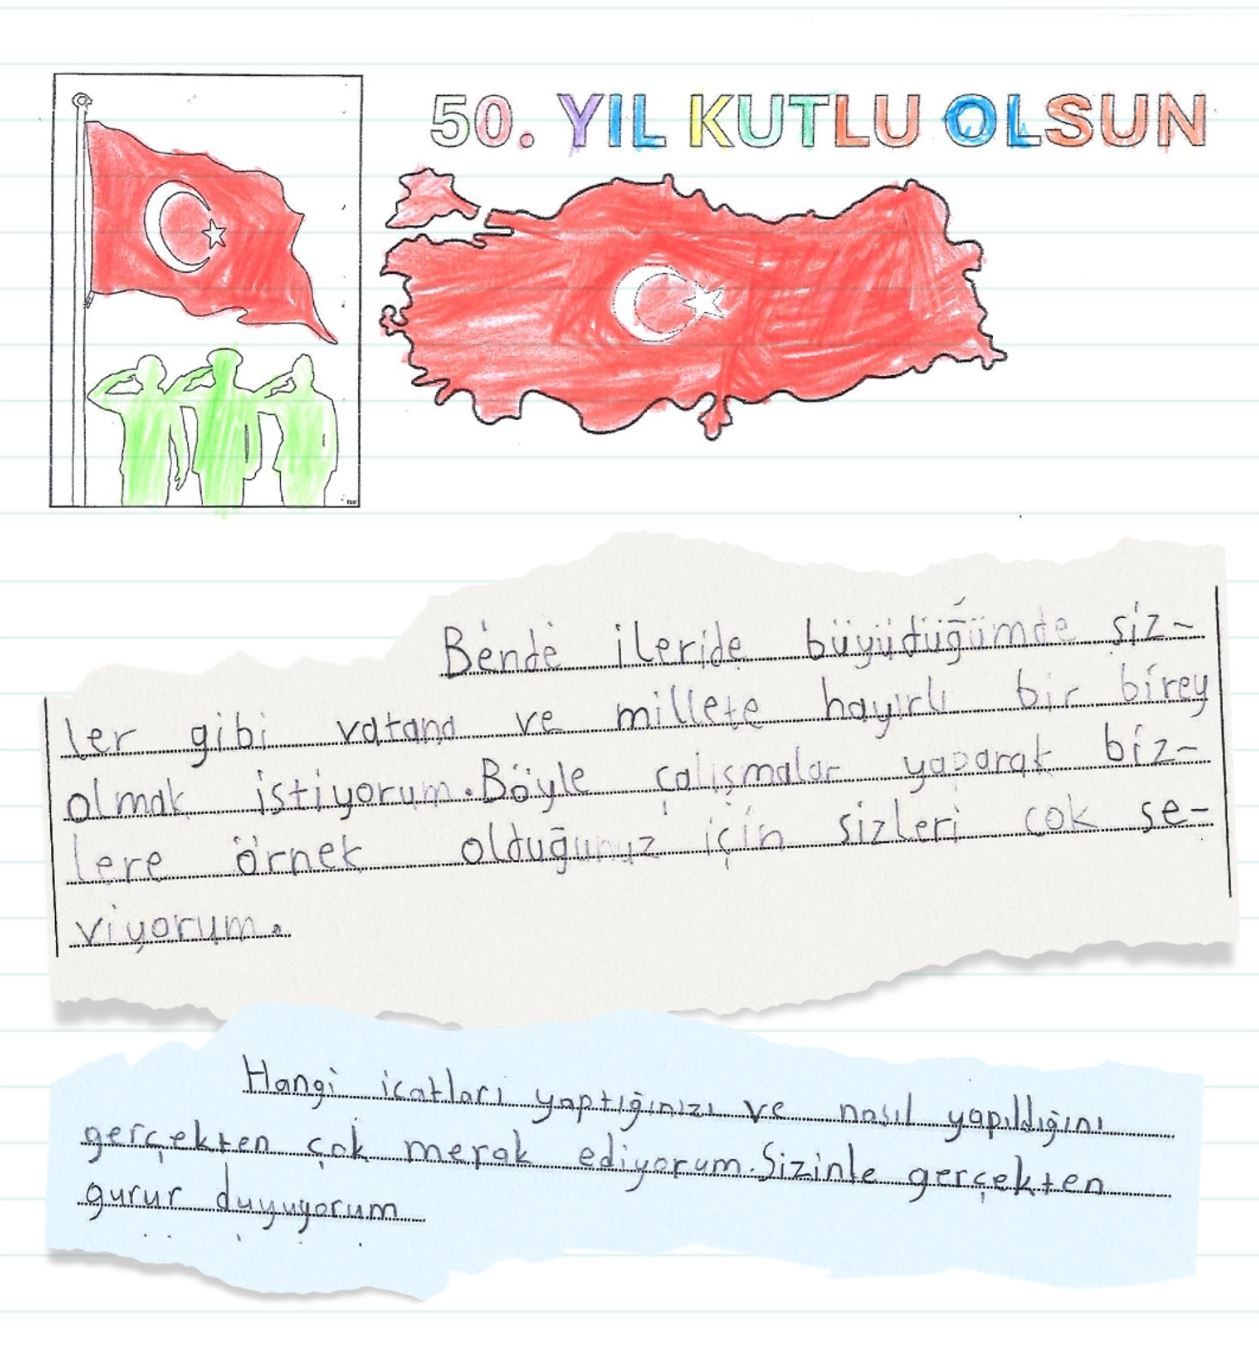 50. YIL KUTLU OLSUN
Bende ileride büyüdüğümde siz-
ler gibi vatana ve millete hayırlı bir birey
olmak istiyorum. Böyle çalışmalar yaparak biz-
lere örnek olduğunuz için sizleri çok se-
viyorum.
Hangi icatları yaptığınızı ve nasıl yapıldığını
gerçekten çok merak ediyorum. Sizinle gerçekten
gurur duyuyorum